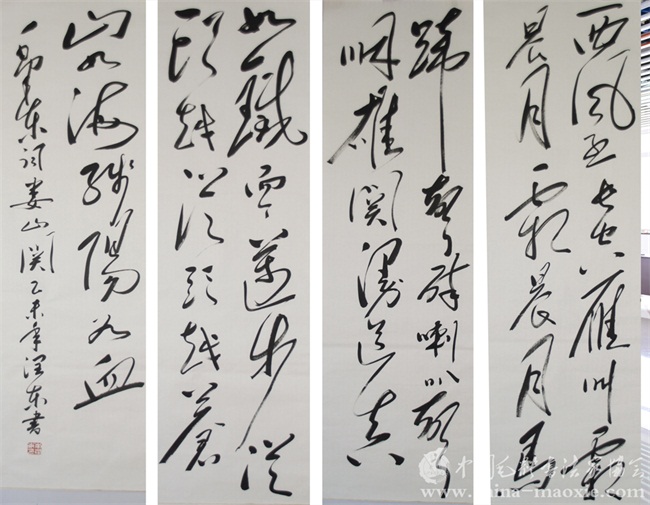 西风烈长空雁叫霜
晨月霜晨月马
蹄声碎喇叭声
咽雄关漫道真
如铁而今迈步从
头越从头越苍
山如海残阳如血
毛泽东词娄山关乙未年东书
www.china-maoxie.com